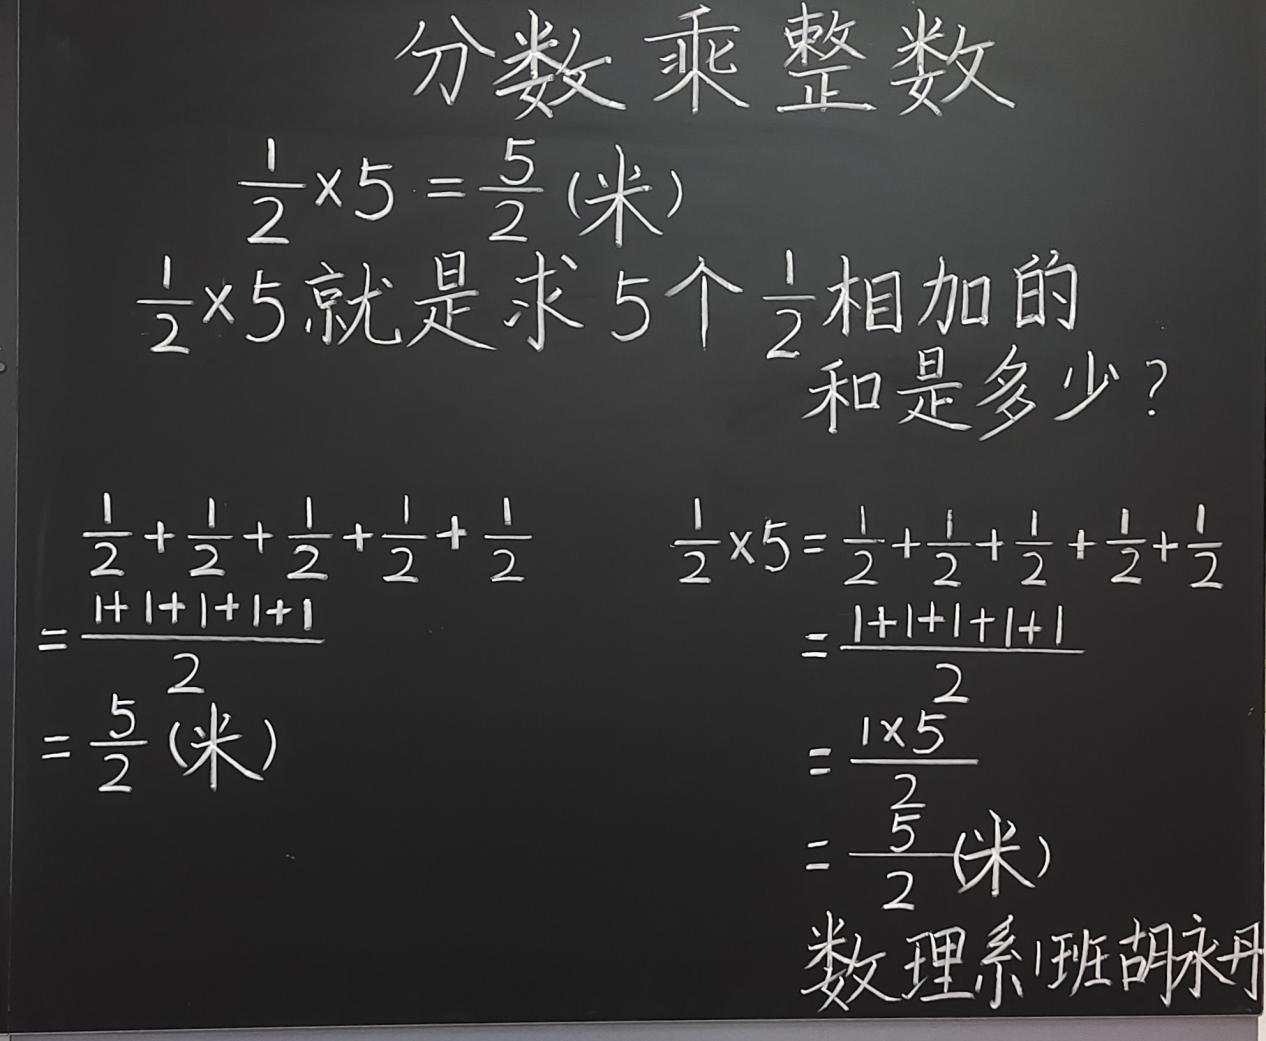 分数乘整数
1/2×5=5/2(米)
1/2×5就是求5个1/2相加的
和是多少?
1/2+1/2+1/2+1/2+1/2
=(1+1+1+1+1)/2
=5/2(米)
1/2×5=1/2+1/2+1/2+1/2+1/2
=(1+1+1+1+1)/2
=(1×5)/2
=5/2(米)
数理系1班胡永丹